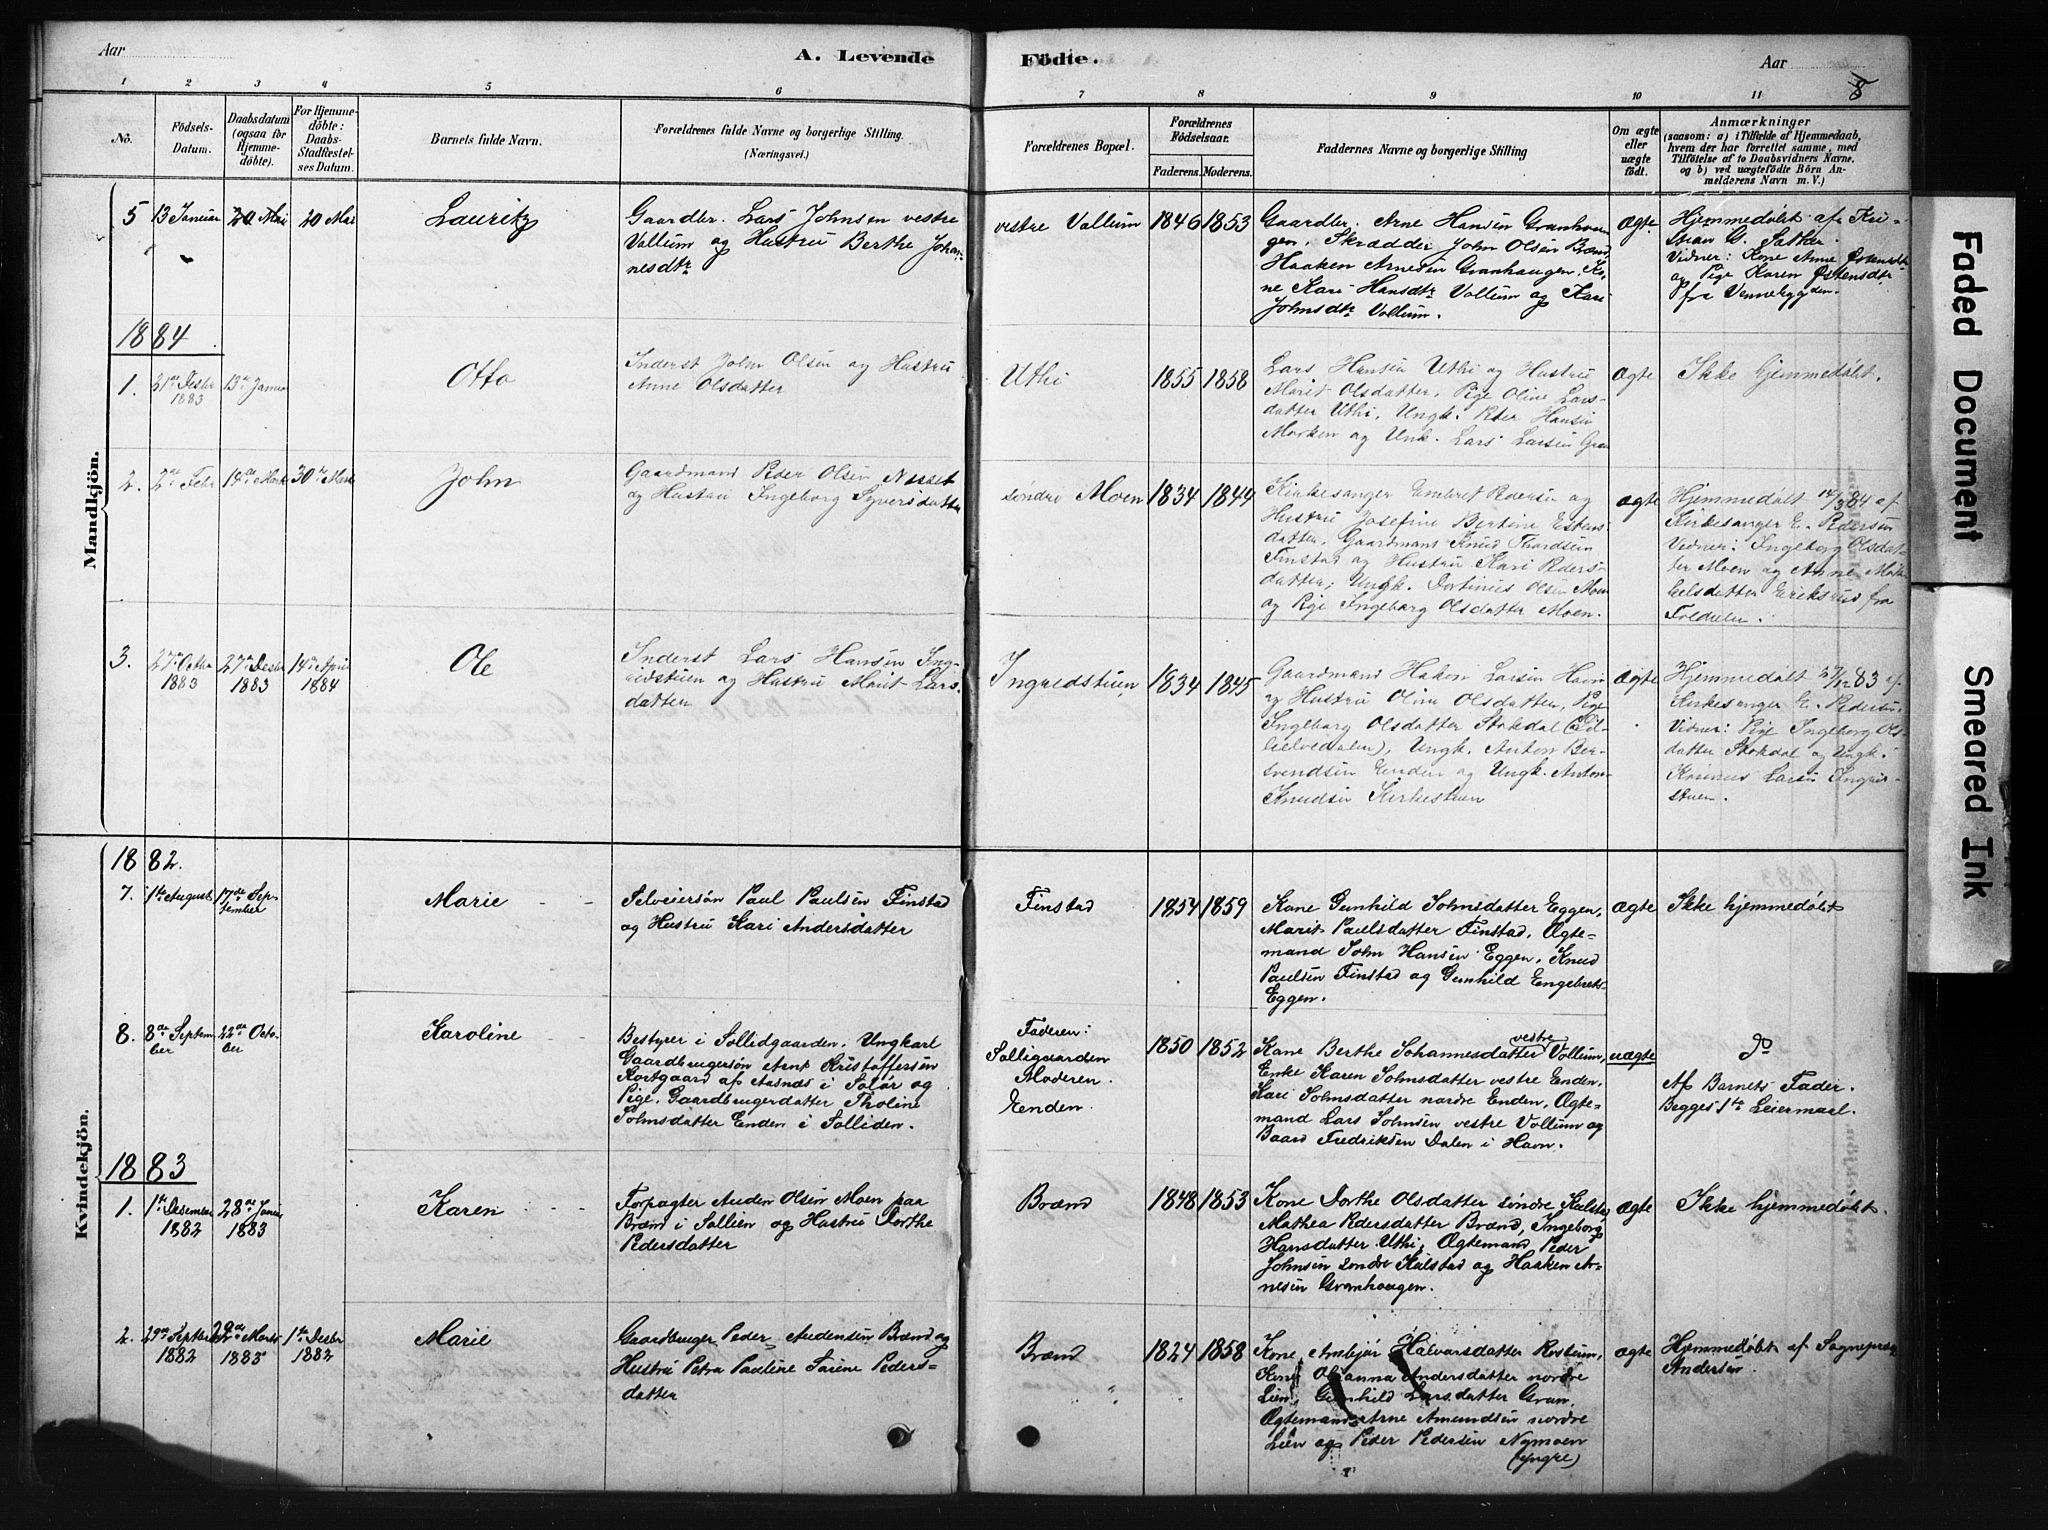 Aar
A. Levende
Födte.
Aar
8
1 2 3 4 5 6 7 8 9 10 11
No.
Födsels-
Datum.
Daabsdatum
(ogsaa for
Hjemme-
döbte).
For Hjemme-
döbte:
Daabs-
Stadfæstel-
ses Datum.
Barnets fulde Navn.
Forældrenes fulde Navne og borgerlige Stilling.
(Næringsvei.)
Forældrenes Bopæl.
Forældrenes
Födselsaar.
Faderens. Moderens.
Faddernes Navne og borgerlige Stilling
Om ægte
eller
uægte
födt.
Anmærkninger
(saasom: a) i Tilfælde af Hjemmedaab,
hvem der har forrettet samme, med
Tilföielse af to Daabsvidners Navne.
og b) ved uægtefödte Börn An-
melderens Navn m. V.)
Mandkjön.
5 13 Januar 20 Mai 20 Mai
Lauritz
Gaardbr. Lars Johnsen vestre
Vollum og Hustru Berthe Johan-
nesdtr
vestre Vollum
1846 1853
Gaardbr. Arne Hansen Granhau-
gen, Skrædder John Olsen Brænd,
Haaken Arnesen Granhaugen, Ko-
ne Kari Hansdtr Vollum og Kari
Johnsdtr Vollum.
Ægte
Hjemmedøbt af Kri-
stian G. Sæther.
Vidner: Kone Anne Østensdtr
og Pige Karen Østensdtr
fra Vennebygden.
1884
1. 21de Desbr
1883
13de Januar
Otto
Inderst John Olsen og Hustru
Anne Olsdatter
Uthi
1855 1858
Lars Hansen Uthi og Hustru
Marit Olsdatter, Pige Oline Lars-
datter Uthi, Ungk. Peder Hansen
Morken og Unk. Lars Larsen Gran
Ægte
Ikke hjemmedøbt.
2. 2de Febr 14de Marts 30te Marts
John
Gaardmand Peder Olsen Nesset
og Hustru Ingeborg Syversdatter
søndre Moen
1834 1844
Kirkesanger Embret Pedersen og
Hustru Josefine Bertine Estens-
datter, Gaardmand Knud Thordsen
Finstad og Hustru Kari Peders-
datter, Ungk. Dortinus Olsen Moen
og Pige Ingeborg Olsdatter Moen.
Ægte
Hjemmedøbt 14/3 84 af
Kirkesanger E. Pedersen
Vidner: Ingeborg Olsdat-
ter Moen og Anne Mik-
kelsdatter Eriksrud fra
3. 27de Octbr
1883
27de Desbr
1883
14de April
1884
Ole
Inderst Lars Hansen Ing-
ridstuen og Hustru Marit Lars-
datter
Ingridstuen
1834 1845
Gaardmand Haken Larsen Havn
og Hustru Oline Olsdatter, Pige
Ingeborg Olsdatter Stokdal
Ungk. Anton Ber-
svendsen Enden og Ungk. Anton
Knudsen Kirkestuen
Ægte
Hjemmedøbt 27/12 83 af
Kirkesanger E. Pedersen.
Vidner: Pige Ingeborg Ols-
datter Stokdal og Ungk.
Larsen Ingrid-
stuen.
Kvindekjön.
1882.
7. 1te August 17de Sep-
tember
Marie
Selveiersøn Paul Paulsen Finstad
og Hustru Kari Andersdatter
Finstad
1854 1859
Kone Gunhild Johnsdatter Eggen,
Marit Paulsdatter Finstad, Ægte-
mand John Hansen Eggen, Knud
Paulsen Finstad og Gunhild Engebrets-
Eggen.
Ægte
Ikke hjemmedøbt
8. 8de Septem-
ber
22de Octo-
ber
Karoline
Bestyrer i Sollidgaarden, Ungkarl
Gaardbrugersøn Arnt Kristoffersen
Kortgaard af Aasnæs i Solør og
Pige, Gaardbrugerdatter Tholine
Johnsdatter Enden i Solliden.
Faderen:
Solligaarden
Moderen.
Enden.
1850 1852
Kone Berthe Johannesdatter vestre Vollum,
Enke Karen Johnsdatter vestre Enden,
Kari Johnsdatter nordre Enden, Ægte-
mand Lars Johnsen vestre Vollum og
Baard Fredriksen Dalen i Havn.
uægte
do
Af Barnets Fader.
Begges 1te Leiermaal.
1883
1. 1te Desember
1882
28de Januar
1883
Karen
Forpagter Auden Olsen Moen paa
Brænn i Sollien og Hustru Dorthe
Pedersdatter
Brænd
1848 1853
Kone Dorthe Olsdatter søndre Kulstad
Mathea Pedersdatter Brænd, Ingeborg
Hansdatter Uthi, Ægtemand Peder
Johnsen søndre Kulstad og Haaken Ar-
nesen Granhaugen.
Ægte
Ikke hjemmedøbt.
2. 29de Septbr
1882
Marts
1883
1te Desbr
1882
Marie
Gaardbruger Peder Audensen Brænd og
Hustru Petra Pauline Sørine Peders-
datter
Brænd
1824 1858
Kone Ambjør Halvorsdatter Rostum,
Kone Olianna Andersdatter nordre
Lien, Gunhild Larsdatter Gran,
Ægtemand Arne Amundsen nordre
Lien og Peder Pedersen Nymoen
(yngre)
Ægte
Hjemmedøbt af Sognepræst
Andersen.
Faded Document
Smeared Ink